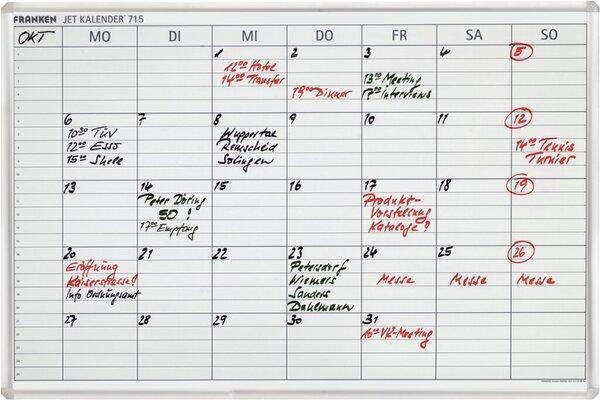 FRANKEN JET KALENDER 715
OKT MO DI MI DO FR SA SO
1 2 3 4 5
12⁰⁰ Hotel
14⁰⁰ Transfer
19⁰⁰ Dinner
13⁰⁰ Meeting
17⁰⁰ Interviews
6 7 8 9 10 11 12
10³⁰ TÜV
12⁰⁰ Esso
15⁰⁰ Shell
Wuppertal
Remscheid
Solingen
14⁰⁰ Tennis
Turnier
13 14 15 16 17 18 19
Peter Döring
50!
17⁰⁰ Empfang
Produkt-
Vorstellung
Kataloge!
20 21 22 23 24 25 26
Eröffnung
Kaiserstrasse!
Info Ordnungsamt
Petersdorf
Wiemers
Sanders
Dahlemann
Messe Messe Messe
27 28 29 30 31
10⁰⁰ VK-Meeting